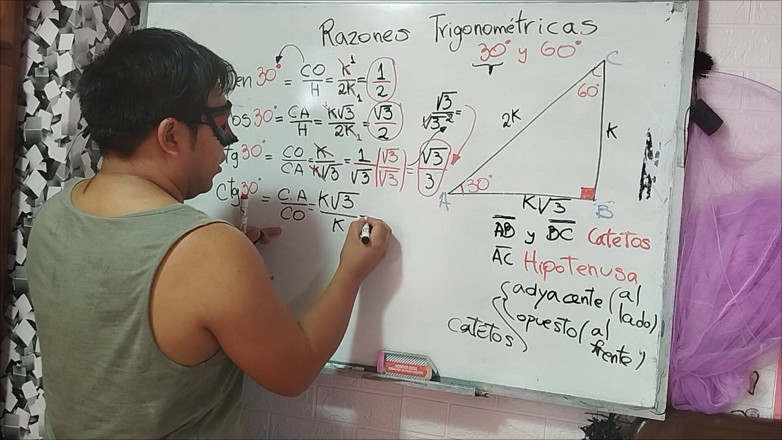 Razones Trigonométricas
30° y 60°
en 30° = CO/H = K/2K = 1/2
os 30° = CA/H = K√3/2K = √3/2
tg 30° = CO/CA = K/K√3 = 1/√3 (√3/√3) = √3/3
√3/√3² =
Ctg 30° = C.A/CO = K√3/K =
C
60°
2K
K
A 30°
K√3
B
AB y BC Catetos
AC Hipotenusa
Catetos
adyacente (al lado)
opuesto (al frente)